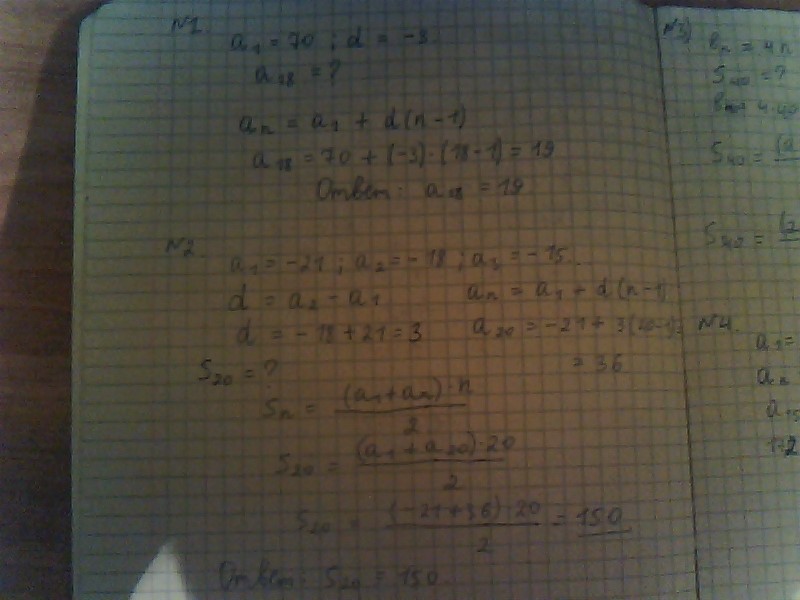 №1
a₁ = 70 ; d = -3.
a₁₈ = ?
aₙ = a₁ + d(n-1)
a₁₈ = 70 + (-3)·(18-1) = 19
Ответ: a₁₈ = 19
№2
a₁ = -21 ; a₂ = -18 ; a₃ = -15..
d = a₂ - a₁ aₙ = a₁ + d(n-1)
d = -18+21 = 3 a₂₀ = -21 + 3(20-1) =
= 36
S₂₀ = ?
Sₙ = (a₁+aₙ)·n / 2
S₂₀ = (a₁+a₂₀)·20 / 2
S₂₀ = (-21+36)·20 / 2 = 150
Ответ: S₂₀ = 150.
№3)
вₙ = 4n
S₄₀ = ?
S₄₀ =
S₄₀ =
№4.
a₁ =
aₙ
a₁₅